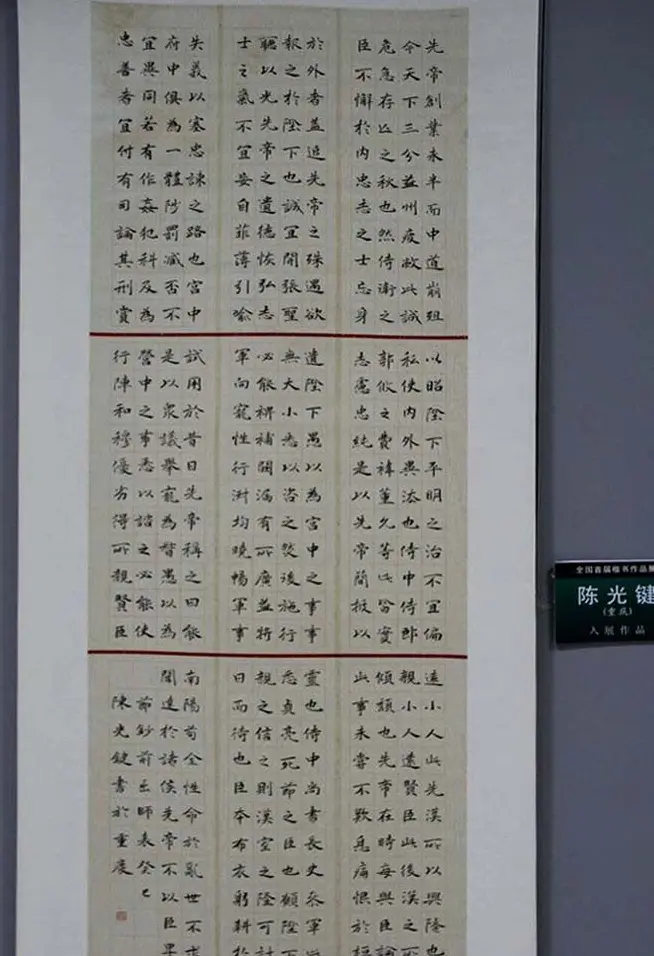 先帝創業未半而中道崩殂
今天下三分益州疲敝此誠
危急存亡之秋也然侍衛之
臣不懈於内忠志之士忘身
於外者蓋追先帝之殊遇欲
報之於陛下也誠宜開張聖
聽以光先帝之遺德恢弘志
士之氣不宜妄自菲薄引喻
失義以塞忠諫之路也宮中
府中俱為一體陟罰臧否不
宜異同若有作姦犯科及為
忠善者宜付有司論其刑賞
以昭陛下平明之治不宜偏
私使内外異法也侍中侍郎
郭攸之費禕董允等此皆實
志慮忠純是以先帝簡拔以
遺陛下愚以為宮中之事事
無大小悉以咨之然後施行
必能裨補闕漏有所廣益將
軍向寵性行淑均曉暢軍事
試用於昔日先帝稱之曰能
是以衆議舉寵為督愚以為
營中之事悉以諮之必能使
行陣和穆優劣得所親賢臣
遠小人此先漢所以興隆也
親小人遠賢臣此後漢之所
傾頹也先帝在時每與臣論
此事未嘗不歎息痛恨於桓
靈也侍中尚書長史參軍此
悉貞亮死節之臣也願陛下
親之信之則漢室之隆可計
日而待也臣本布衣躬耕於
南陽苟全性命於亂世不求
聞達於諸侯先帝不以臣卑
節鈔前出師表癸巳
陳光鍵書於重慶
全国首届楷书作品展
陈光键
(重庆)
入展作品